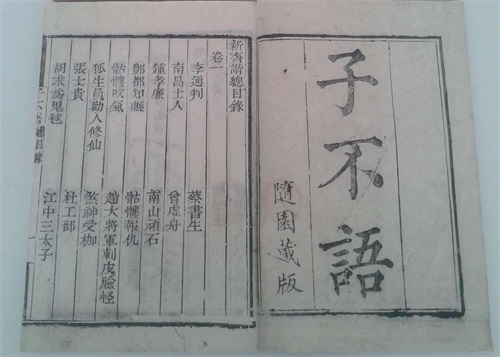 子不語
隨園藏版
新齊諧總目錄
卷一
李通判 蔡書生
南昌士人 曾虛舟
鍾孝廉 南山頑石
酆都知縣 骷髏報仇
骷髏吹氣 趙大將軍刺皮臉怪
狐生員勸人修仙 煞神受枷
張士貴 杜工部
胡求爲鬼毬 江中三太子
總目錄